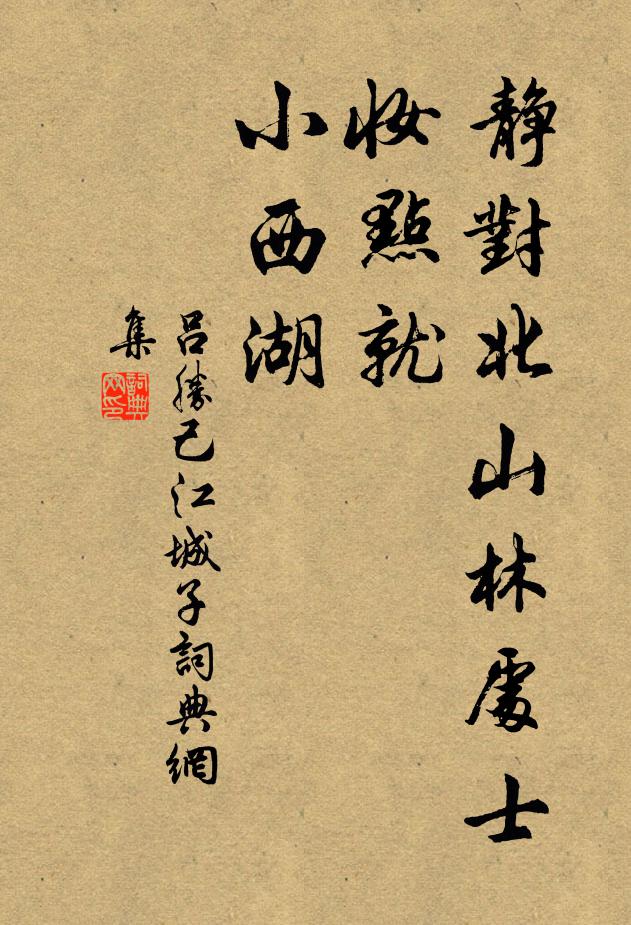 靜對北山林處士
妝點就
小西湖
呂勝己江城子詞典網
集
詞典網印